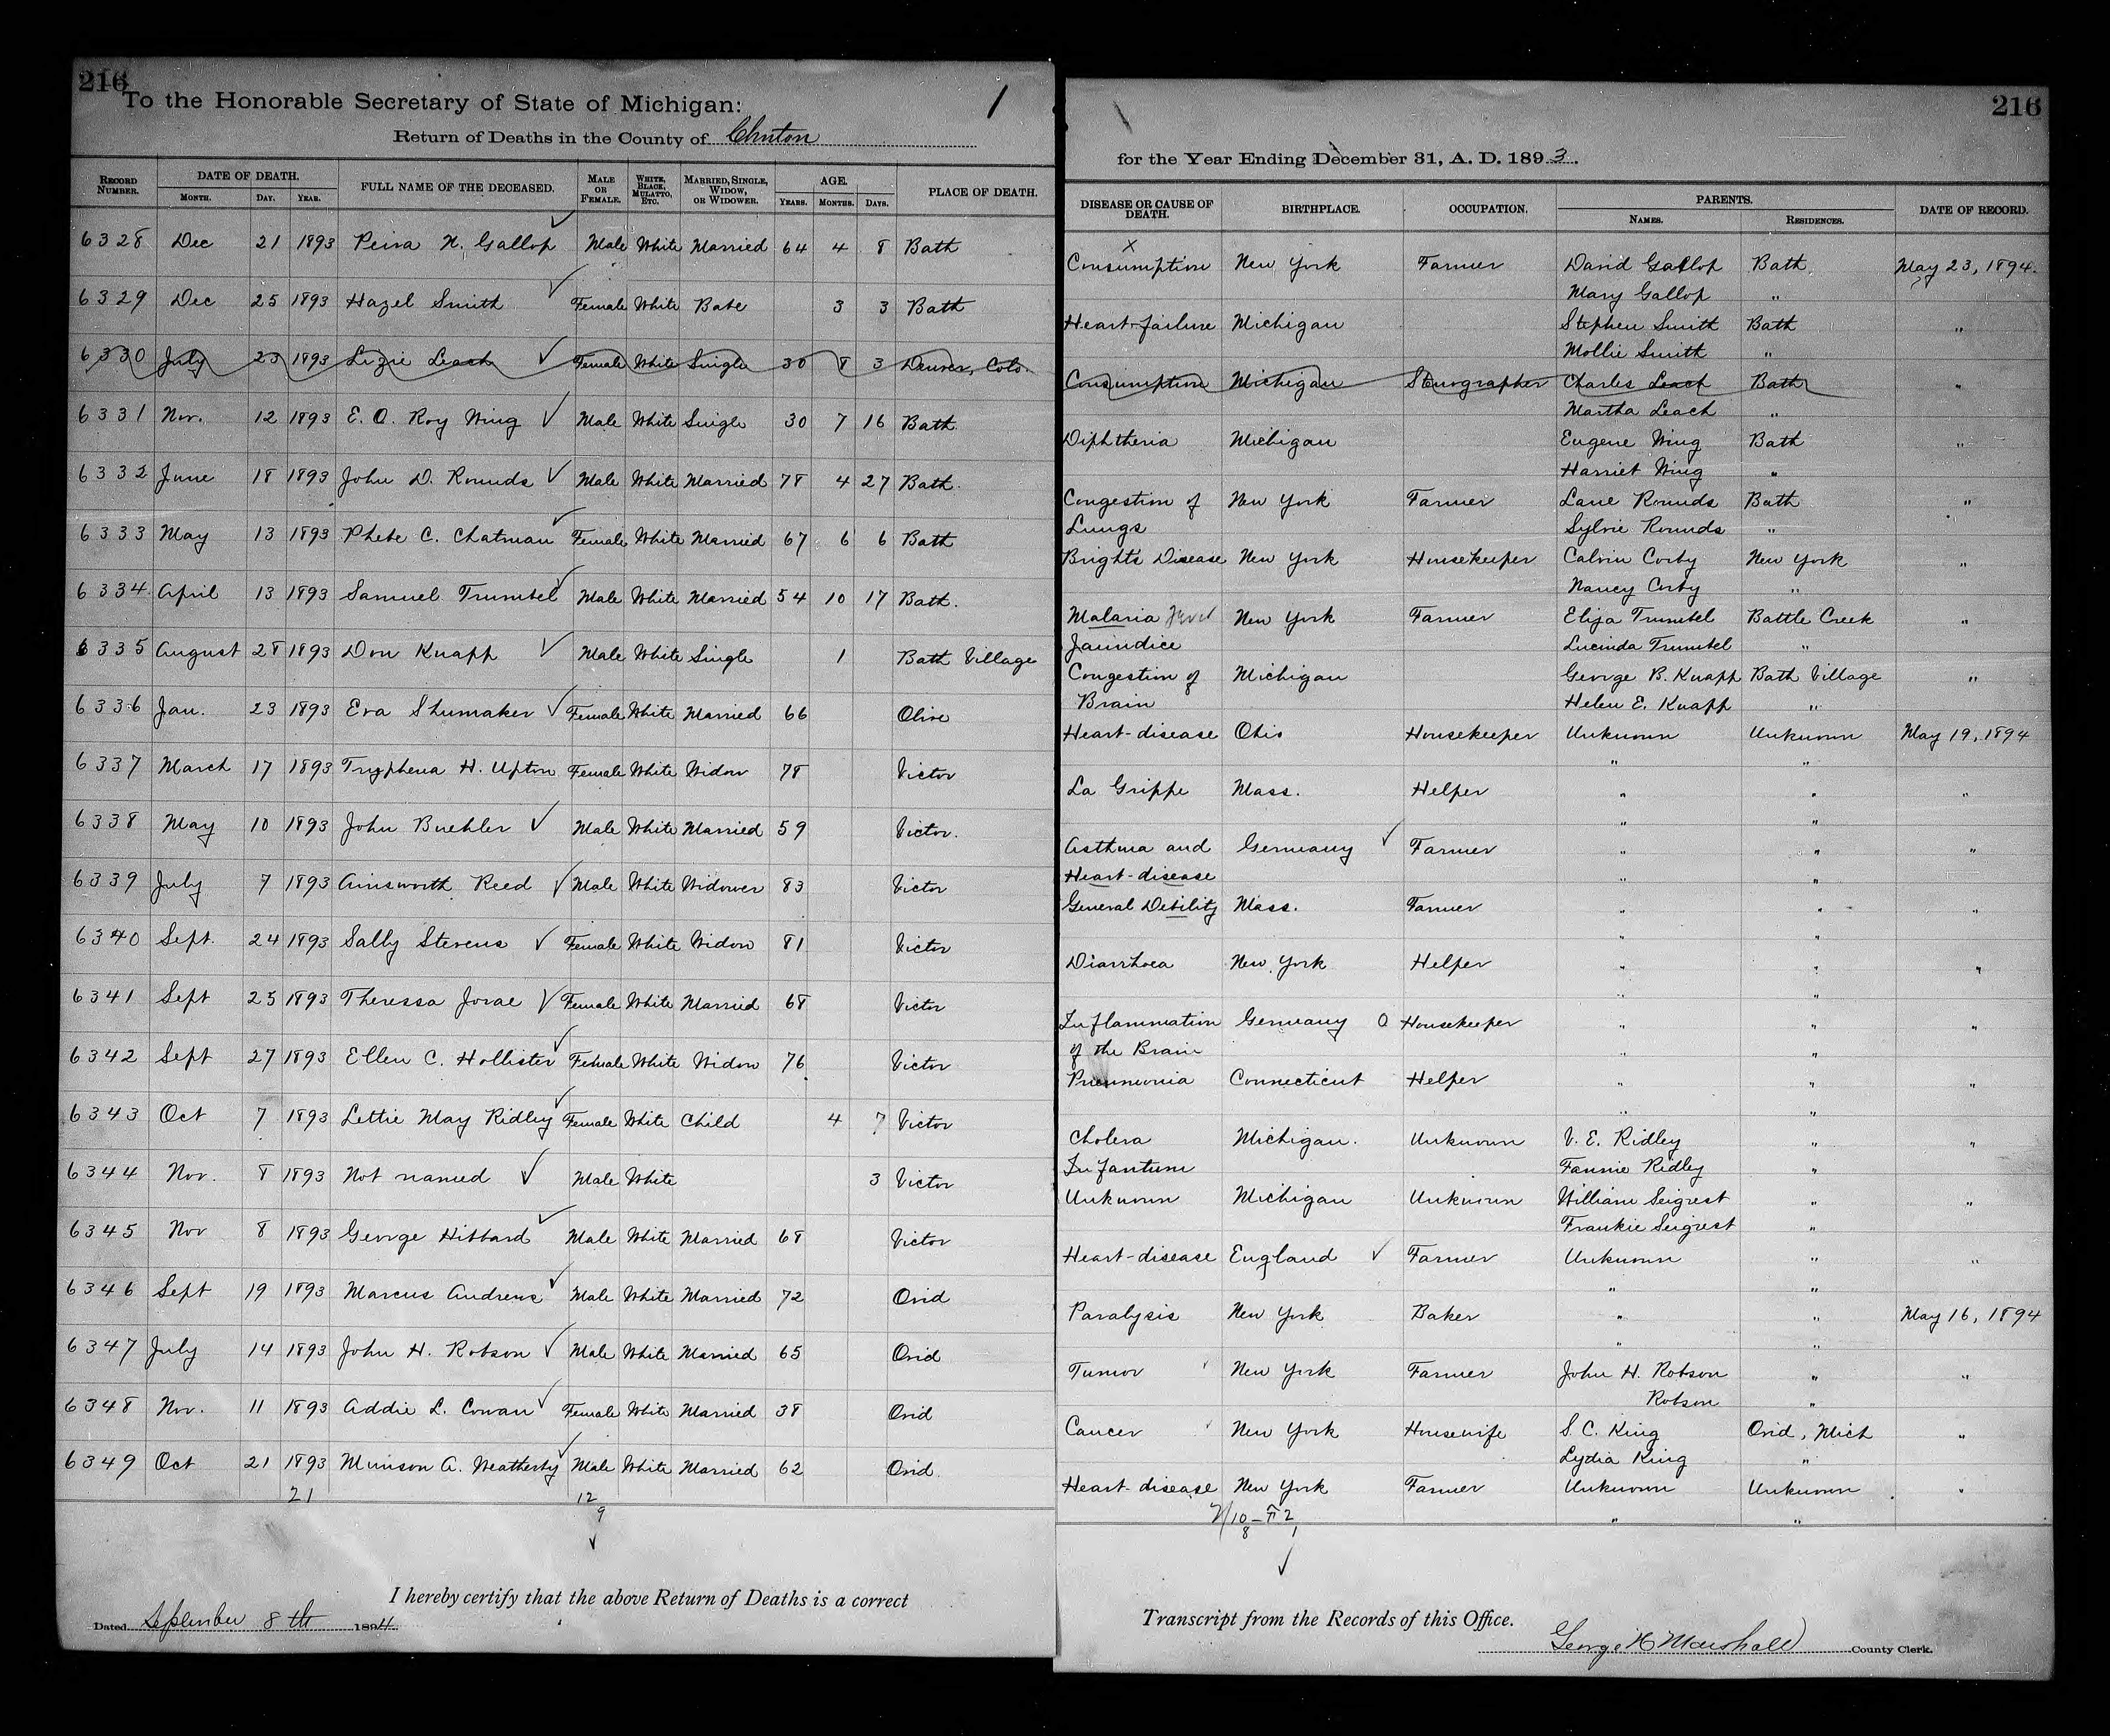 216
To the Honorable Secretary of State of Michigan: 1
Return of Deaths in the County of Clinton
RECORD NUMBER. DATE OF DEATH. MONTH. DAY. YEAR. FULL NAME OF THE DECEASED. MALE OR FEMALE. WHITE, BLACK, MULATTO, ETC. MARRIED, SINGLE, WIDOW, OR WIDOWER. AGE. YEARS. MONTHS. DAYS. PLACE OF DEATH.
6328 Dec 21 1893 N. Gallop Male White Married 64 4 8 Bath
6329 Dec 25 1893 Hazel Smith Female White Babe 3 3 Bath
6330 July 23 1893 Lizie Leach Female White Single 30 8 3 Denver, Colo.
6331 Nov. 12 1893 E. O. Roy Wing Male White Single 30 7 16 Bath
6332 June 18 1893 John D. Rounds Male White Married 78 4 27 Bath.
6333 May 13 1893 Phebe C. Chatman Female White Married 67 6 6 Bath
6334. April 13 1893 Samuel Trumbel Male White Married 54 10 17 Bath.
6335 August 28 1893 Don Knapp Male White Single 1 Bath Village
6336 Jan. 23 1893 Eva Shumaker Female White Married 66 Olive
6337 March 17 1893 Tryphena H. Upton Female White Widow 78 Victor
6338 May 10 1893 John Buehler Male White Married 59 Victor.
6339 July 7 1893 Ainsworth Reed Male White Widower 83 Victor
6340 Sept. 24 1893 Sally Stevens Female White Widow 81 Victor
6341 Sept 25 1893 Theressa Jorae Female White Married 68 Victor
6342 Sept 27 1893 Ellen C. Hollister Female White Widow 76 Victor
6343 Oct 7 1893 Lettie May Ridley Female White Child 4 7 Victor
6344 Nov. 8 1893 Not named Male White 3 Victor
6345 Nov 8 1893 George Hibbard Male White Married 68 Victor
6346 Sept 19 1893 Marcus Andrews Male White Married 72 Ovid
6347 July 14 1893 John H. Robson Male White Married 65 Ovid
6348 Nov. 11 1893 Addie L. Cowan Female White Married 38 Ovid
6349 Oct 21 1893 Munson A. Weatherby Male White Married 62 Ovid.
21 12
9
I hereby certify that the above Return of Deaths is a correct
Dated September 8th 1894
216
for the Year Ending December 31, A. D. 1893.
DISEASE OR CAUSE OF DEATH. BIRTHPLACE. OCCUPATION. PARENTS. NAMES. RESIDENCES. DATE OF RECORD.
Consumption New York Farmer David Gallop Bath May 23, 1894.
Mary Gallop "
Heart-failure Michigan Stephen Smith Bath "
Mollie Smith "
Consumption Michigan Stenographer Charles Leach Bath "
Martha Leach "
Diphtheria Michigan Eugene Wing Bath "
Harriet Wing "
Congestion of New York Farmer Lane Rounds Bath "
Lungs Sylvie Rounds "
Brights Disease New York Housekeeper Calvin Corby New York "
Nancy Corby "
Malaria New York Farmer Elija Trumbel Battle Creek "
Jaundice Lucinda Trumbel "
Congestion of Michigan George B. Knapp Bath Village "
Brain Helen E. Knapp "
Heart-disease Ohio Housekeeper Unknown Unknown May 19, 1894
" "
La Grippe Mass. Helper " " "
" "
Asthma and Germany Farmer " " "
Heart-disease " "
General Debility Mass. Farmer " " "
" "
Diarrhoea New York Helper " " "
" "
Inflammation Germany Housekeeper " " "
of the Brain " "
Pneumonia Connecticut Helper " " "
" "
Cholera Michigan. Unknown V. E. Ridley " "
Infantum Fannie Ridley "
Unknown Michigan Unknown William Seigrest " "
Frankie Seigrest "
Heart-disease England Farmer Unknown " "
" "
Paralysis New York Baker " " May 16, 1894
" "
Tumor New York Farmer John H. Robson " "
Robson "
Cancer New York Housewife S. C. King Ovid, Mich "
Lydia King "
Heart-disease New York Farmer Unknown Unknown "
" "
Transcript from the Records of this Office.
George H Marshall County Clerk.